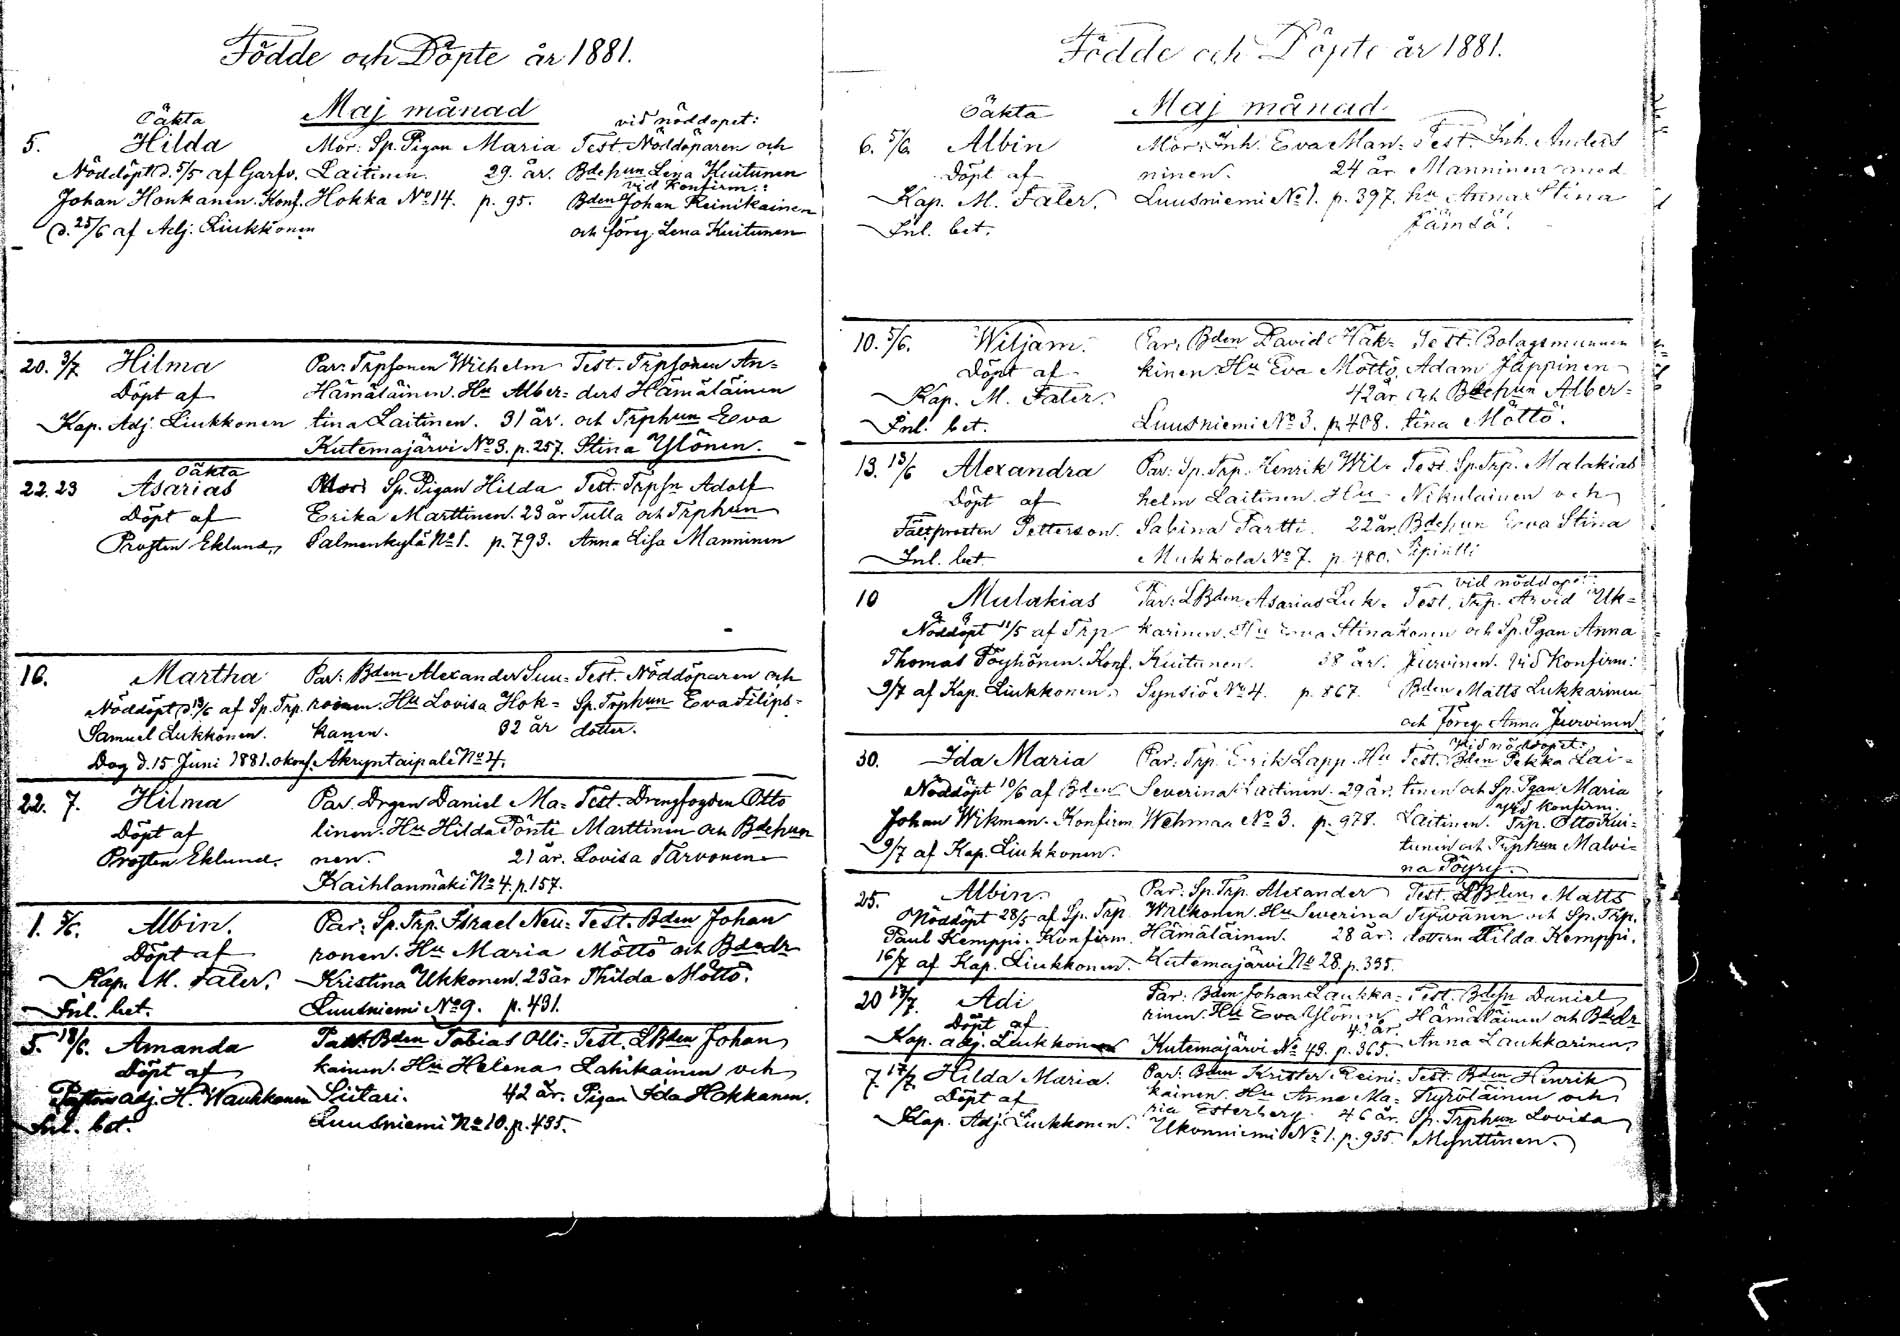 Födde och Döpte år 1881.
Maj månad
Oäkta
vid nöddopet:
5. Hilda Mor: Sp. Pigan Maria Test. Nöddöparen och
Nöddöpt d. 5/5 af Garfv. Laitinen. 29. år. Bdehun Lena Kuitunen
vid Konfirm.:
Johan Honkanen. Konf. Hokka No 14. p. 95. Bden Johan Reinikainen
d. 25/6 af Adj. Liukkonen och föreg. Lena Kuitunen
20. 3/7 Hilma Par: Trpsonen Wilhelm Test. Trpsonen An=
Döpt af Hämäläinen. Hu Alber= ders Hämäläinen
Kap. Adj. Liukkonen tina Laitinen. 31 år. och Trphun Eva
Kutemajärvi No 3. p. 257. Stina Ylönen.
Oäkta
22. 23 Asarias Mor: Sp. Pigan Hilda Test. Trpsn Adolf
Döpt af Erika Marttinen. 23 år Tulla och Trphun
Prosten Eklund, Salmenkylä No 1. p. 793. Anna Lisa Manninen
16. Martha Par: Bden Alexander Suu= Test. Nöddöparen och
Nöddöpt d. 13/6 af Sp. Trp. ronen. Hu Lovisa Hok= Sp. Trphun Eva Filips=
Samuel Lukkonen. kanen. 32 år dotter.
Dog d. 15 Juni 1881. okonf. Akryntaipale No 4.
22. 7. Hilma Par. Drgen Daniel Ma= Test. Drengfogden Otto
Döpt af linen. Hu Hilda Pönti= Marttinen och Bdehun
Prosten Eklund. nen. 21 år. Lovisa Tarvonen
Kaihlanmäki No 4. p. 157.
1. 5/6. Albin. Par: Sp. Trp. Israel Neu= Test. Bden Johan
Döpt af ronen. Hu Maria Möttö och Bdedr
Kap. M. Faler. Kristina Ukkonen. 23 år Thilda Möttö.
Inl. bet. Luusniemi No 9. p. 431.
5. 18/6. Amanda Par. Bden Tobias Olli= Test. LBden Johan
Döpt af kainen. Hu Helena Lahikainen och
adj. H. Waukkonen Siitari. 42 år. Pigan Ida Hokkanen.
Inl. bet. Luusniemi No 10. p. 435.
Födde och Döpte år 1881.
Maj månad
Oäkta
6. 5/6. Albin Mor: Inh. Eva Man= Test. Inh. Anders
Döpt af ninen. 24 år Manninen med
Kap. M. Faler. Luusniemi No 1. p. 397. hu Anna Stina
Inl. bet. Jämsä.
10. 5/6. Wiljam. Par: Bden David Häk= Test. Bolagsmannen
Döpt af kinen. Hu Eva Möttö. Adam Jäppinen
Kap. M. Faler. 42 år och Bdehun Alber=
Inl. bet. Luusniemi No 3. p. 408. tina Möttö.
13. 13/6 Alexandra Par: Sp. Trp. Henrik Wil= Test. Sp. Trp. Malakias
Döpt af helm Laitinen. Hu Nikulainen och
Fältprosten Petterson. Sabina Partti. 22 år. Bdehun Eva Stina
Inl. bet. Mukkola No 7. p. 480.
vid nöddopet:
10 Malakias Par: LBden Asarias Luk= Test. Trp. Arvid Uk=
Nöddöpt 11/5 af Trp karinen. Hu Eva Stina konen och Sp. Pgan Anna
Thomas Pöyhönen. Konf. Kuitunen. 38 år. Jurvinen. vid Konfirm:
9/7 af Kap. Liukkonen. Synsiö No 4. Bden Matts Lukkarinen
och föreg. Anna Jurvinen.
vid nöddopet:
30. Ida Maria Par: Trp. Erik Lapp. Hu Test. Bden Pekka Lai=
Nöddöpt 10/6 af Bden Severina Laitinen. 29 år. tinen och Sp. Pgan Maria
vid konfirm.
Johan Wikman. Konfirm Wehmaa No 3. p. 978. Laitinen. Trp. Otto Kui=
9/7 af Kap. Liukkonen. tunen och Trphun Malvi=
na Pöyry.
25. Albin. Par: Sp. Trp. Alexander Test. LBden Matts
Nöddöpt 28/5 af Sp. Trp. Walkonen. Hu Severina och Sp. Trp.
Paul Kemppi. Konfirm. Hämäläinen. 28 år. dottern Hilda Kemppi.
16/7 af Kap. Liukkonen. Kutemajärvi No 28. p. 335.
20 17/7. Adi Par: Bden Johan Laukka= Test. Bdesn Daniel
Döpt af rinen. Hu Eva Ylönen Hämäläinen och Bdedr
Kap. adj. Liukkonen Kutemajärvi No 49. p. 365. Anna Laukkarinen.
7. 17/7 Hilda Maria. Par: Bden Krister Reini= Test. Bden Henrik
Döpt af kainen. Hu Anna Ma= Hyvöläinen och
Kap. Adj. Liukkonen. ria Esterberg. 46 år. Sp. Trphun Lovisa
Ukonniemi No 1. p. 935. Mynttinen.